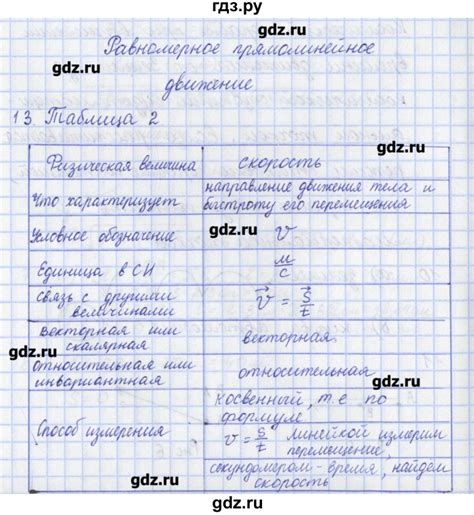 гдз.ру
Равномерное прямолинейное
gdz.ru gdz.ru
движение
13 Таблица 2
gdz.ru
Физическая величина скорость
Что характеризует направление движения тела и быстроту его перемещения
gdz.ru
Условное обозначение v
gdz.ru
Единица в СИ м/с
gdz.ru
связь с другими величинами v⃗ = s⃗/t
gdz.ru
векторная или скалярная векторная
gdz.ru
относительная или инвариантная относительная
gdz.ru
Способ измерения косвенный, т е по формуле
v = s/t линейкой измерим перемещение,
секундомером - время, найдем скорость
gdz.ru
gdz.ru
gdz.ru